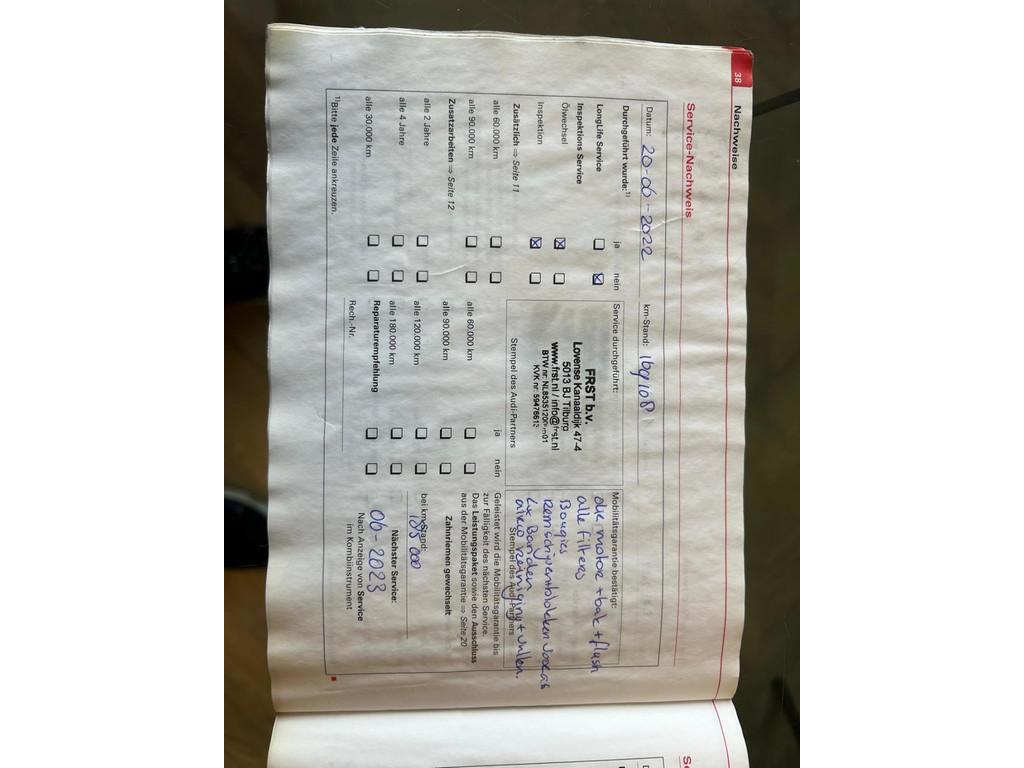 38
Nachweise
Service-Nachweis
Datum: 20-06-2022
km-Stand: 169108
Durchgeführt wurde:¹⁾
ja nein
LongLife Service
Inspektions Service
Ölwechsel
Inspektion
Zusätzlich ⇒ Seite 11
alle 60.000 km
alle 90.000 km
Zusatzarbeiten ⇒ Seite 12
alle 2 Jahre
alle 4 Jahre
alle 30.000 km
¹⁾Bitte jede Zeile ankreuzen.
Service durchgeführt:
FRST b.v.
Lovense Kanaaldijk 47-4
5013 BJ Tilburg
www.frst.nl / info@frst.nl
BTW nr: NL8535120
KVK nr: 5947661
Stempel des Audi-Partners
ja nein
alle 60.000 km
alle 90.000 km
alle 120.000 km
alle 180.000 km
Reparaturempfehlung
Rech.-Nr.
Mobilitätsgarantie bestätigt:
olie motor + bak + flush
alle filters
Bougies
remschijven + blokken vooras
Banden
airco reiniging + vullen.
Stempel des Audi-Partners
Geleistet wird die Mobilitätsgarantie bis
zur Fälligkeit des nächsten Service.
Das Leistungspaket sowie den Ausschluss
aus der Mobilitätsgarantie ⇒ Seite 20
Zahnriemen gewechselt
bei km-Stand:
000
Nächster Service:
06-2023
Nach Anzeige von Service
im Kombiinstrument